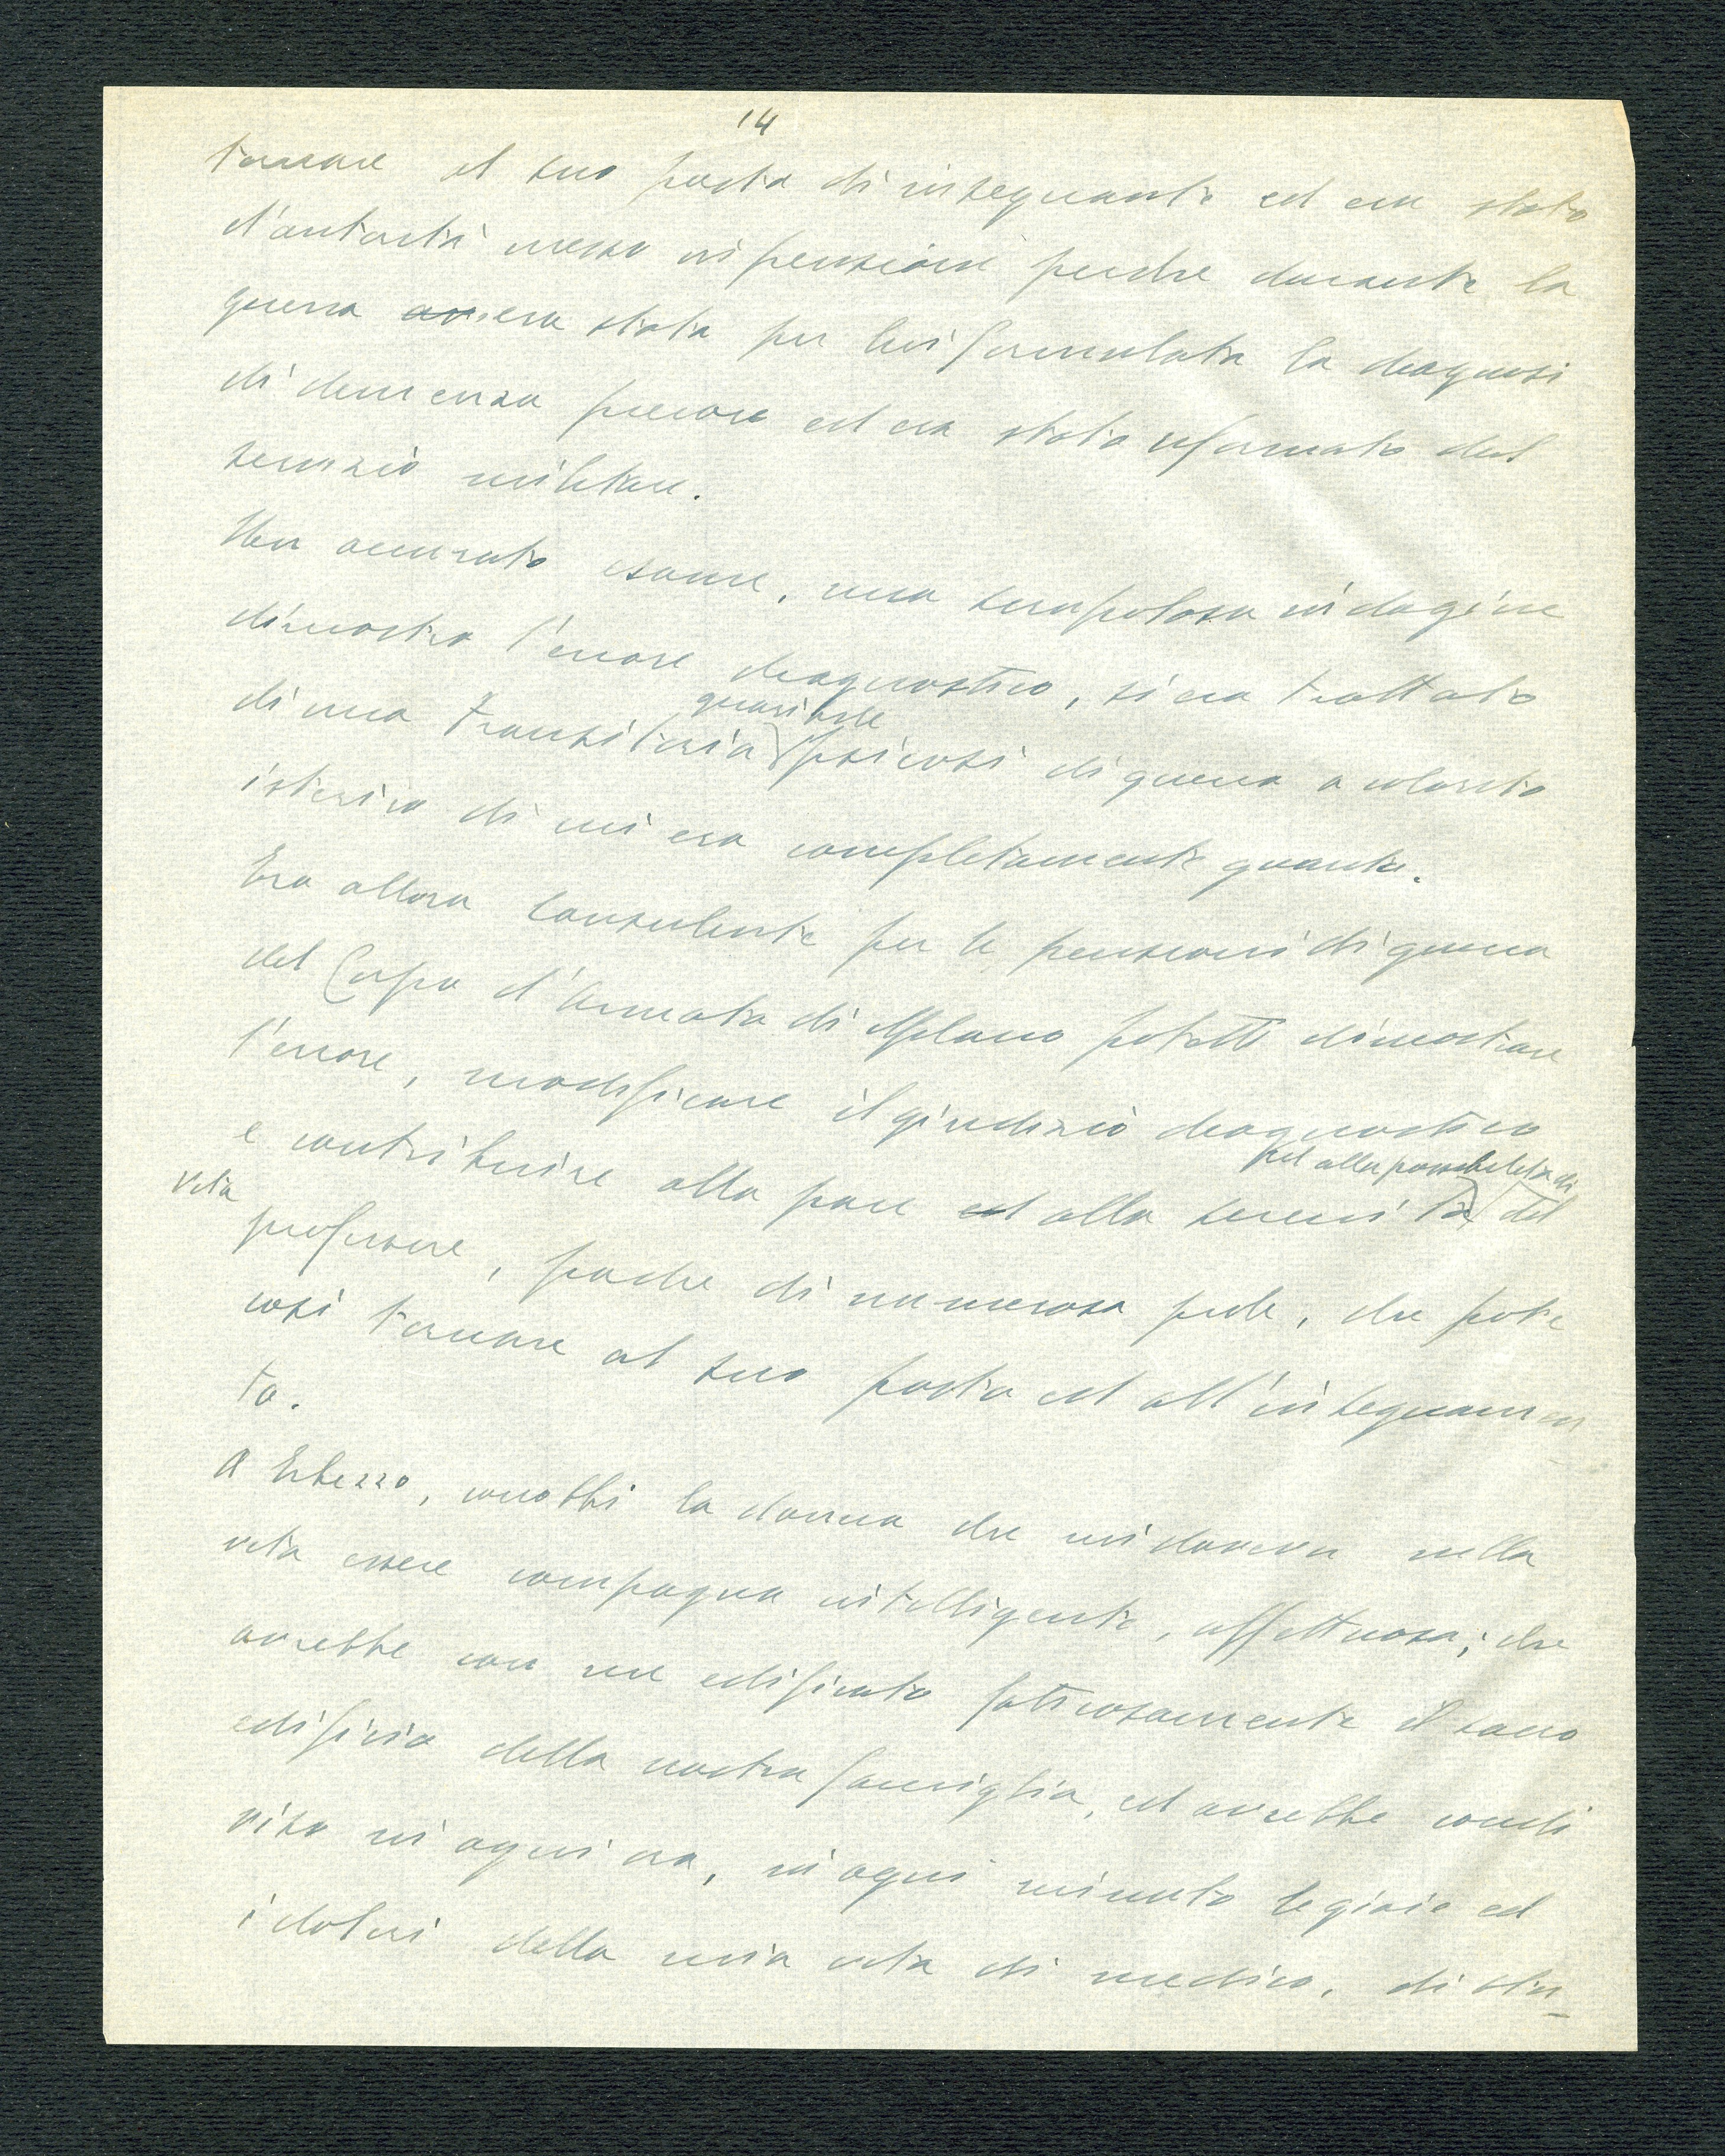 14
tornare al suo posto di insegnante ed era stato
d'autorità messo in pensione perchè durante la
guerra av era stata per lui formulata la diagnosi
di demenza precoce ed era stato riformato dal
servizio militare.
Un accurato esame, una scrupolosa indagine
dimostrò l'errore diagnostico, si era trattato
guaribile
di una transitoria psicosi di guerra a colorito
isterico di cui era completamente guarito.
Ero allora consulente per le pensioni di guerra
del Corpo d'Armata di Milano potetti dimostrare
l'errore, modificare il giudizio diagnostico
ed alla possibilità di
e contribuire alla pace ed alla serenità del
vita
professore, padre di numerosa prole, che potè
così tornare al suo posto ed all'insegnamen
to.
A Erbezzo, conobbi la donna che mi doveva nella
vita essere compagna intelligente, affettuosa; che
avrebbe con me edificato faticosamente il sacro
edificio della nostra famiglia, ed avrebbe condi
viso in ogni ora, in ogni minuto le gioie ed
i dolori della mia vita di medico, di stu-